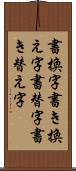 書換字書き換
え字書替字書
き替え字